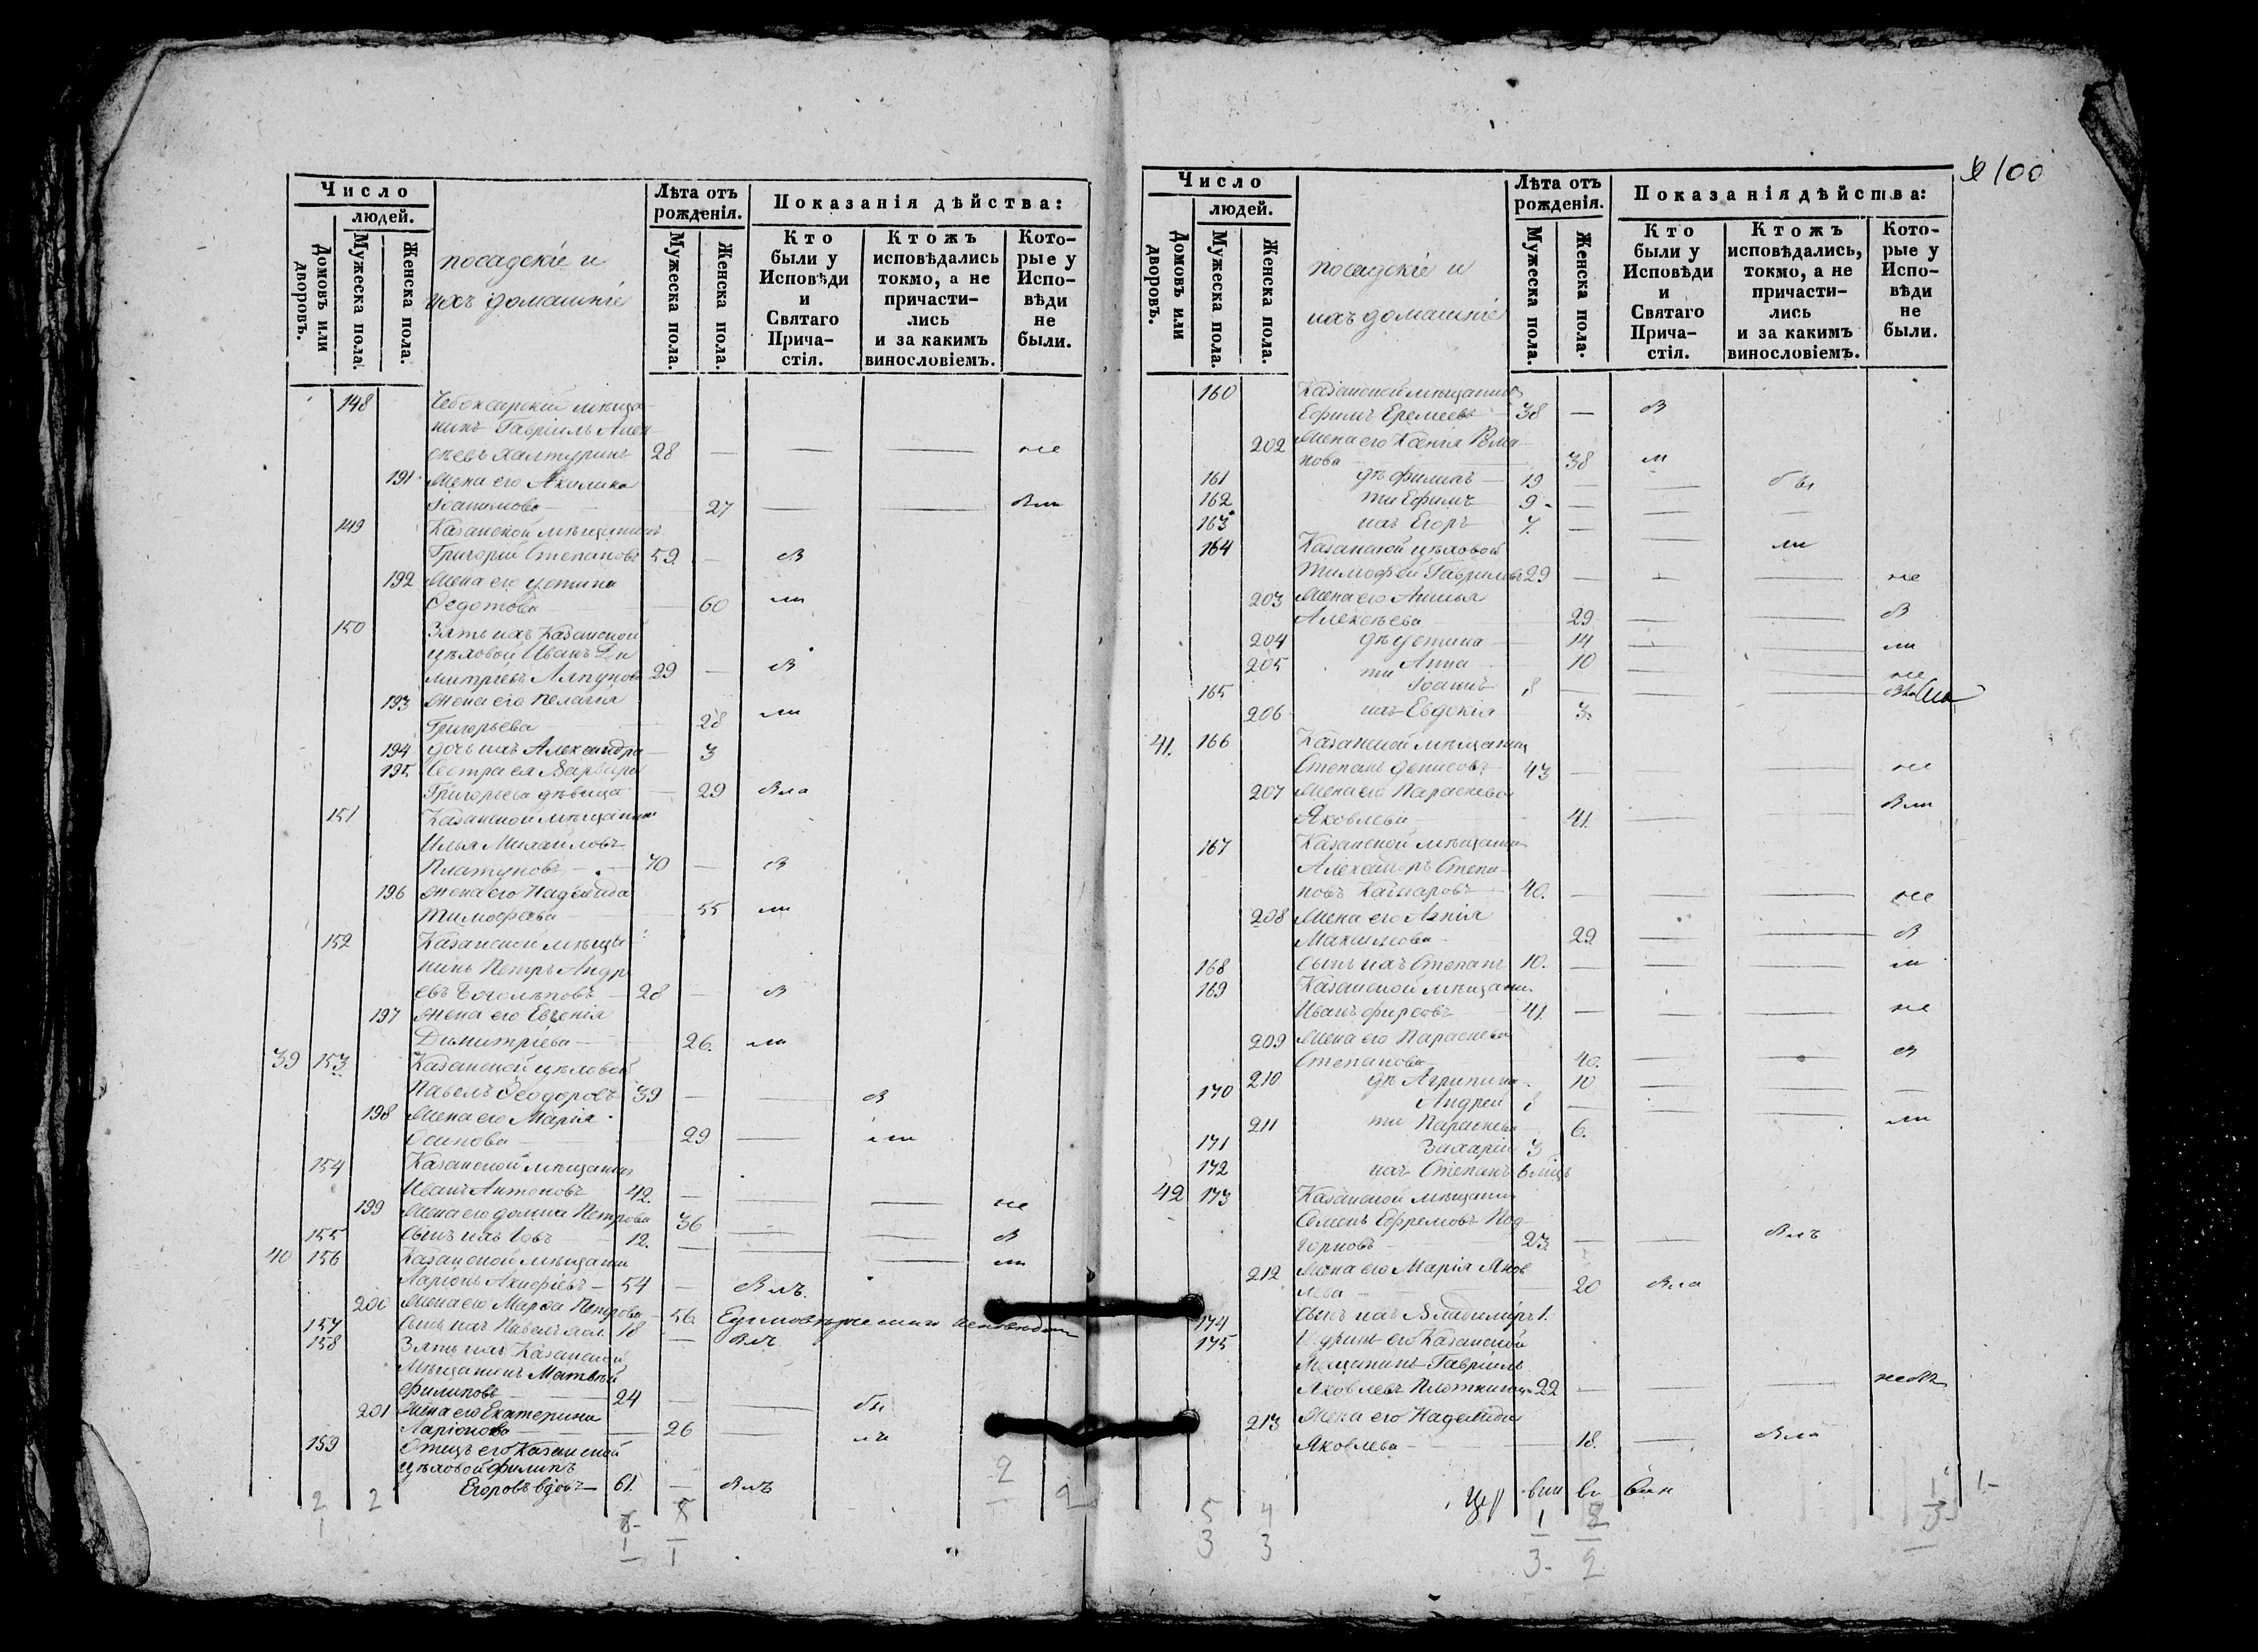 Число
людей.
Домовъ или дворовъ.
Мужеска пола.
Женска пола.
посадскіе и
ихъ домашніе
Лѣта отъ
рожденія.
Мужеска пола.
Женска пола.
Показанія дѣйства:
Кто
были у
Исповѣди
и
Святаго
Прича-
стія.
Ктожъ
исповѣдались
токмо, а не
причасти-
лись
и за какимъ
винословіемъ.
Кото-
рые у
Испо-
вѣди
не
были.
148 Чебоксарскій мѣща-
нинъ Гавріилъ Алек-
сѣевъ Халтуринъ 28 — — — не
191 Жена его Акилина
Іоакимова 27 — — были
149 Казанской мѣщанинъ
Григорій Степановъ 59 — б
192 Жена его Устина
Ѳедотова — 60 ли
150 Зять ихъ Казанской
цѣховой Иванъ Ди
митріевъ Ляпуновъ 29 — б
193 Жена его Пелагія
Григорьева — 28 ли
194 Дочь ихъ Александра — 3
195 Сестра ея Варвара
Григорьева дѣвица — 29 была
151 Казанской мѣщанинъ
Илья Михайловъ
Платуновъ 70 — б
196 Жена его Надежда
Тимофеева — 55 ли
152 Казанской мѣща
нинъ Петръ Андре
евъ Боголѣповъ 28 — б
197 Жена его Евгенія
Димитріева — 26 ли
39 153 Казанской цѣховой
Павелъ Ѳеодоровъ 39 — — б
198 Жена его Марія
Осипова — 29 — ли
154 Казанской мѣщанинъ
Иванъ Антоновъ 42 — — — не
199 Жена его Домна Петрова 36 — — б
155 Сынъ ихъ Іовъ 12 — — — ли
40 156 Казанской мѣщанинъ
Ларіонъ 54 — былъ
200 Жена его Марѳа Петрова — 56
157 Сынъ ихъ Павелъ 18 — былъ
158 Зять ихъ Казанской
мѣщанинъ Матвѣй
Филиповъ 24 — — бы
201 Жена его Екатерина
Ларіонова — 26 — ли
159 Отецъ его Казанской
цѣховой Филипъ
Егоровъ вдовъ 61 — былъ
2 2 2 2
1
1 1
100
Число
людей.
Домовъ или дворовъ.
Мужеска пола.
Женска пола.
посадскіе и
ихъ домашніе
Лѣта отъ
рожденія.
Мужеска пола.
Женска пола.
Показанія дѣйства:
Кто
были у
Исповѣди
и
Святаго
Прича-
стія.
Ктожъ
исповѣдались,
токмо, а не
причасти-
лись
и за какимъ
винословіемъ.
Кото-
рые у
Испо-
вѣди
не
были.
160 Казанской мѣщанинъ
Ефимъ Еремеевъ 38 — б
202 Жена его Ксенія Рома
нова — 38 ли
161 дѣ Филипъ 19 — — бы
162 ти Ефимъ 9 — — —
163 ихъ Егоръ 7 — — ли
164 Казанской цѣховой
Тимофей Гавриловъ 29 — — — не
203 Жена его
Алексѣева — 29 — — б
204 дѣ Устина — 14 — — ли
205 ти Анна — 10 — — не
165 Іоаннъ 8 — — —
206 ихъ Евдокія — 3
41 166 Казанской мѣщанинъ
Степанъ Денисовъ 43 — — — не
207 Жена его Параскева
Яковлева — 41 — — были
167 Казанской мѣщанинъ
Александръ Степа
новъ 40 — — — не
208 Жена его
Максимова — 29 — — б
168 Сынъ ихъ Степанъ 10 — — — ли
169 Казанской мѣщанинъ
Иванъ Фирсовъ 41 — — — не
209 Жена его Параскева
Степанова — 40 — — б
210 дѣ Агрипина — 10 — — —
170 Андрей 8 — — — ли
211 ти Параскева — 6
171 Захарій 3
172 ихъ Степанъ 6 мѣсъ
42 173 Казанской мѣщанинъ
Семенъ Ефремовъ Под
горновъ 23 — — былъ
212 Жена его Марія Яков
лева — 20 была
174 Сынъ ихъ Владимиръ 1
175 Шуринъ его Казанской
Мещанинъ Гавріилъ
Яковлевъ Плотниковъ 22 — — — не былъ
213 Жена его Надежда
Яковлева — 18 — была
5 4 1 2 1 1
3 3 3 2 3